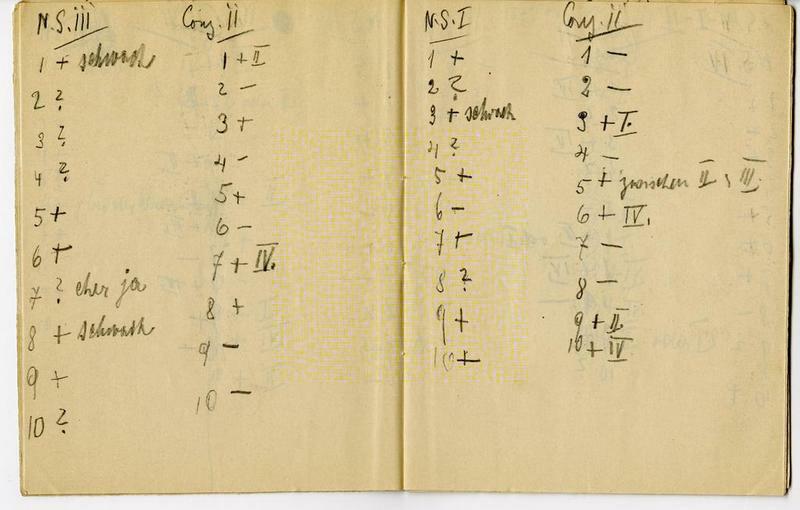 N.S. iii
1 + schwach
2 ?
3 ?
4 ?
5 +
6 +
7 ? eher ja
8 + schwach
9 +
10 ?
Conj. ii
1 + II
2 –
3 +
4 –
5 +
6 –
7 + IV.
8 +
9 –
10 –
N.S. I
1 +
2 ?
3 + schwach
4 ?
5 +
6 –
7 +
8 ?
9 +
10 +
Conj. ii
1 –
2 –
3 + I.
4 –
5 + zwischen II & III.
6 + IV.
7 –
8 –
9 + II.
10 + IV